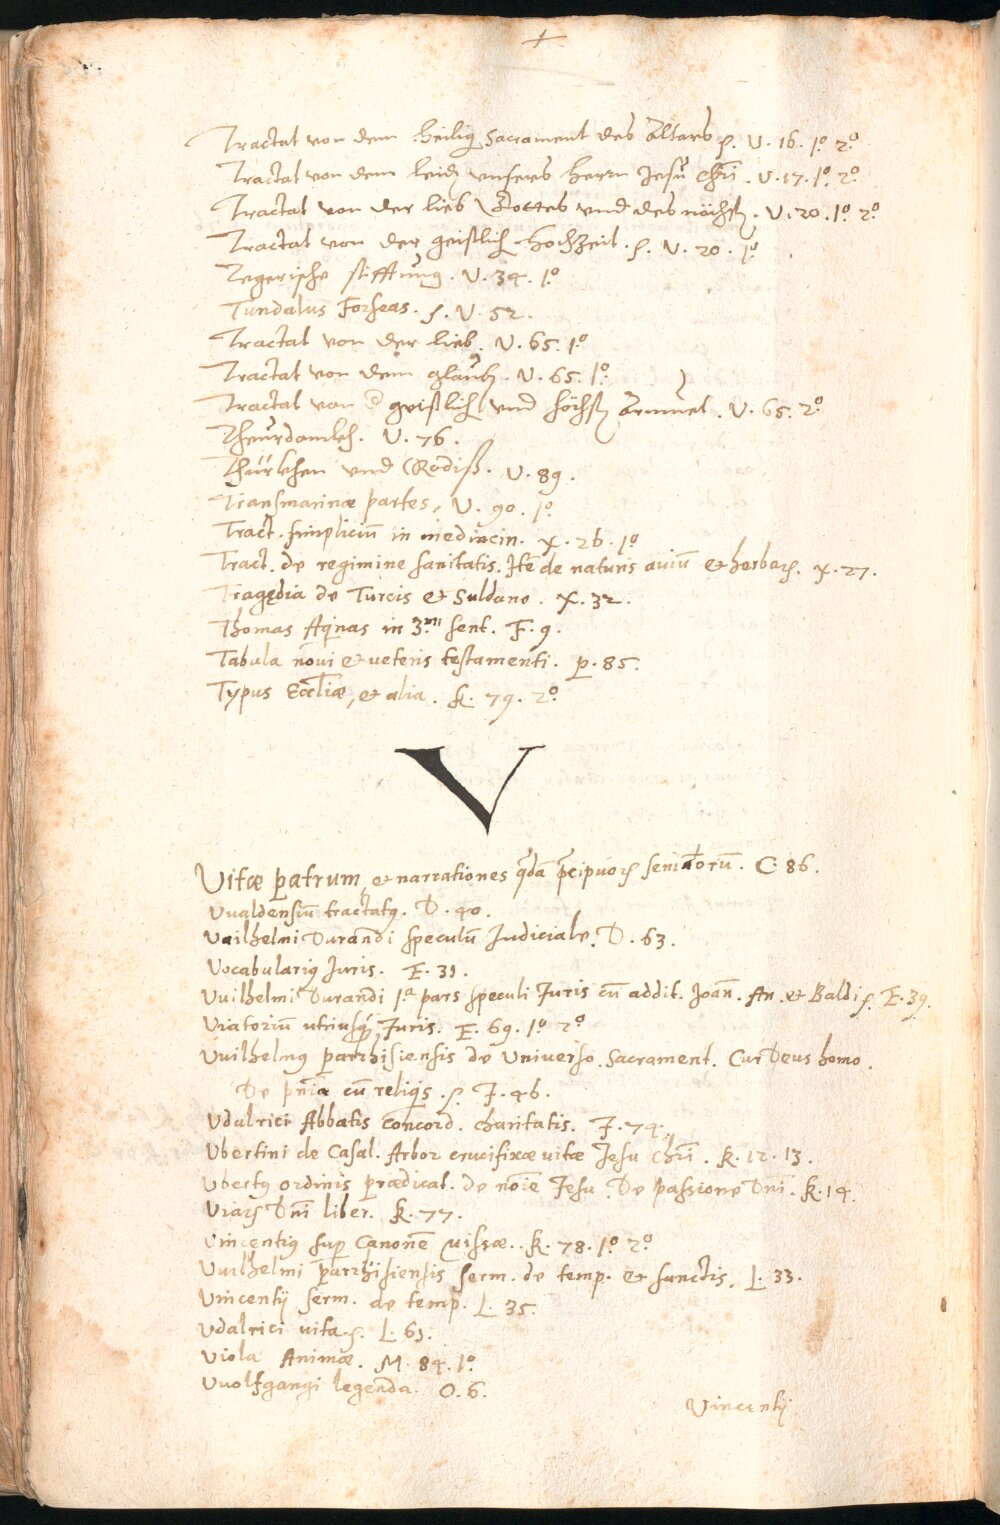 Tractat von dem heilig Sacrament des Altars ſ. V. 16. 1º 2º
Tractat von dem leidē vnsers herrn Jesu Chri̅. V. 17. 1º 2º
Tractat von der lieb Gottes vnd des nächstē. V. 20. 1º 2º
Tractat von der geistlich hochzeit. ſ. V. 20. 1º
Tegerische stifftung. V. 34. 1º
Tundalus ſ. V. 52.
Tractat von der lieb. V. 65. 1º
Tractat von dem glaubē. V. 65. 1º
Tractat von d geistlich vnd höchstē Armuet. V. 65. 2º
V. 76.
vnd Rodiß. V. 89.
Transmarinæ partes. V. 90. 1º
Tract. simpliciū in medincin. X. 26. 1º
Tract. de regimine sanitatis. Itē de naturis auiū et herbarꝝ. X. 27.
Tragędia de Turcis et Suldano. X. 32.
Thomas Aqinas in 3.m sent. F. 9.
Tabula noui et ueteris testamenti. P. 85.
Typus Eccl̅iæ, et alia. K. 79. 2º
V
Vitæ patrum, et narrationes qdā pcipuorꝝ seniorū. C. 86.
Vualdensiū tractatꝰ. D. 40.
Vuilhelmi Durandi speculū Judiciale. D. 63.
Vocabulariꝰ Juris. E. 31.
Vuilhelmi Durandi 1.a pars speculi Juris cū addit. Joan̅. An. et Baldi ſ. E. 39.
Viatoriū utriusq̄ Juris. E. 69. 1º 2º
Vuilhelmꝰ parrhisiensis de Vniuerso. Sacrament. Cur Deus homo.
De pn̅ia cū reliqis. ſ. J. 46.
Vdalrici Abbatis concord. charitatis. J. 74.
Vbertini de Casal. Arbor crucifixæ uitæ Jesu Chri̅. K. 12. 13.
Vbertꝰ ordinis prædicat. de no̅ie Jesu. De passione Dn̅i. K. 14.
Viarꝝ Dn̅i liber. K. 77.
Vincentiꝰ sup Canonē missæ. K. 78. 1º 2º
Vuilhelmi parrhisiensis serm. de temp. et sanctis. L. 33.
Vincentij serm. de temp. L. 35.
Vdalrici uita ſ. L. 61.
Viola Animæ. M. 84. 1º
Vuolfgangi legenda. O. 6.
Vincentij